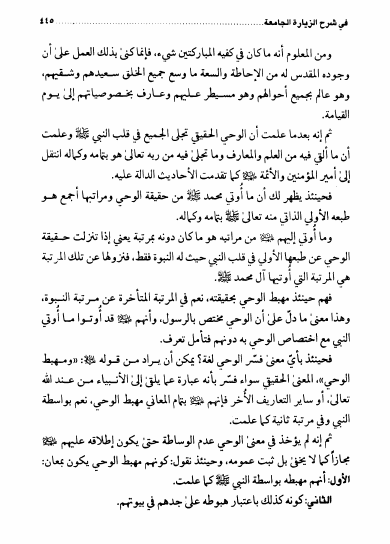 في شرح الزيارة الجامعة ................................................ ٤٤٥
ومن المعلوم أنه ما كان في كفيه المباركتين شيء، فإنما كنىٰ بذلك العمل علىٰ أن
وجوده المقدس له من الإحاطة والسعة ما وسع جميع الخلق سعيدهم وشقيهم،
وهو عالم بجميع أحوالهم وهو مسيطر عليهم وعارف بخصوصياتهم إلىٰ يوم
القيامة.
ثم إنه بعدما علمت أن الوحي الحقيقي تجلى الجميع في قلب النبي ﷺ وعلمت
أن ما ألقي فيه من العلم والمعارف وما تجلىٰ فيه من ربه تعالىٰ هو بتمامه وكماله انتقل
إلىٰ أمير المؤمنين والأئمة ﵈ كما تقدمت الأحاديث الدالة عليه.
فحينئذ يظهر لك أن ما أُوتي محمد ﷺ من حقيقة الوحي ومراتبها أجمع هو
طبعه الأولي الذاتي منه تعالىٰ بتمامه وكماله.
وما أُوتي إليهم ﵈ من مراتبه هو ما كان دونه بمرتبة يعني إذا تنزلت حقيقة
الوحي عن طبعها الأولي في قلب النبي حيث له النبوة فقط، فنزولها عن تلك المرتبة
هي المرتبة التي أُوتيها آل محمد ﷺ.
فهم حينئذ مهبط الوحي بحقيقته، نعم في المرتبة المتأخرة عن مرتبة النبوة،
وهذا معنىٰ ما دلّ علىٰ أن الوحي مختص بالرسول، وأنهم ﵈ قد أُوتوا ما أُوتي
النبي مع اختصاص الوحي به دونهم فتأمل تعرف.
فحينئذ بأيّ معنىٰ فسّر الوحي لغة؟ يمكن أن يراد من قوله ﵇: «ومهبط
الوحي»، المعنى الحقيقي سواء فسّر بأنه عبارة عما يلقىٰ إلى الأنبياء من عند الله
تعالىٰ، أو ساير التعاريف الأُخر فإنهم ﵈ بتمام المعاني مهبط الوحي، نعم بواسطة
النبي وفي مرتبة ثانية كما علمت.
ثم إنه لم يؤخذ في معنى الوحي عدم الوساطة حتىٰ يكون إطلاقه عليهم ﵈
مجازاً كما لا يخفىٰ بل ثبت عمومه، وحينئذ نقول: كونهم مهبط الوحي يكون بمعان:
الأول: أنهم مهبطه بواسطة النبي ﷺ كما علمت.
الثاني: كونه كذلك باعتبار هبوطه علىٰ جدهم في بيوتهم.